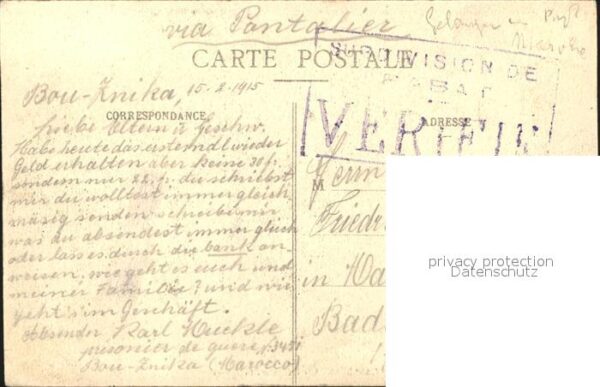 via Pontalier
CARTE POSTALE
SUBDIVISION DE
RABAT
VERIFIE
Bou-Znika, 15.2.1915
CORRESPONDANCE
ADRESSE
Liebe Eltern u Geschw.
Habe heute das erstemal wieder
Geld erhalten aber keine 30 fr.
sondern nur 22. fr. du schriebst
mir du wolltest immer gleich
mäsig senden schreibe mir
was du absendest immer gleich
oder lass es durch die bank an
weisen. wie geht es euch und
meiner Familie? und wie
geht's im Geschäft.
Absender Karl Kuekle
prisonier de guere
Bou-Znika (Marocco)
M
Herrn
Friedr
in
Bad
privacy protection
Datenschutz